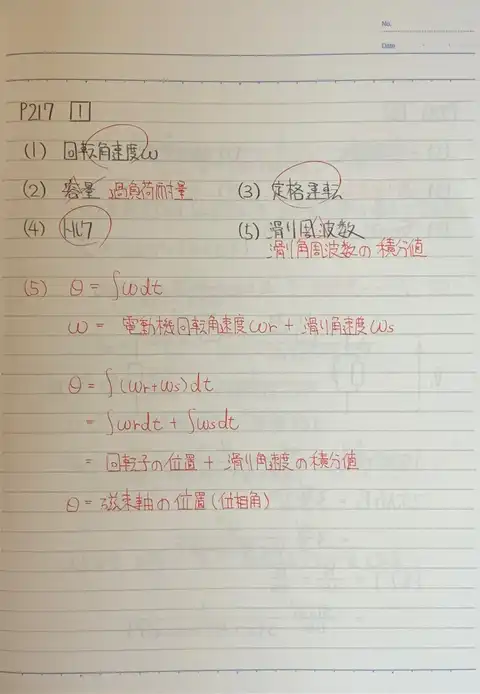 No.
Date
P217 1
(1) 回転角速度ω
(2) 容量 過負荷耐量 (3) 定格運転
(4) トルク (5) 滑り周波数
滑り角周波数の積分値
(5) θ = ∫ωdt
ω = 電動機回転角速度ωr + 滑り角速度ωs
θ = ∫(ωr+ωs)dt
= ∫ωrdt + ∫ωsdt
= 回転子の位置 + 滑り角速度の積分値
θ = 磁束軸の位置(位相角)